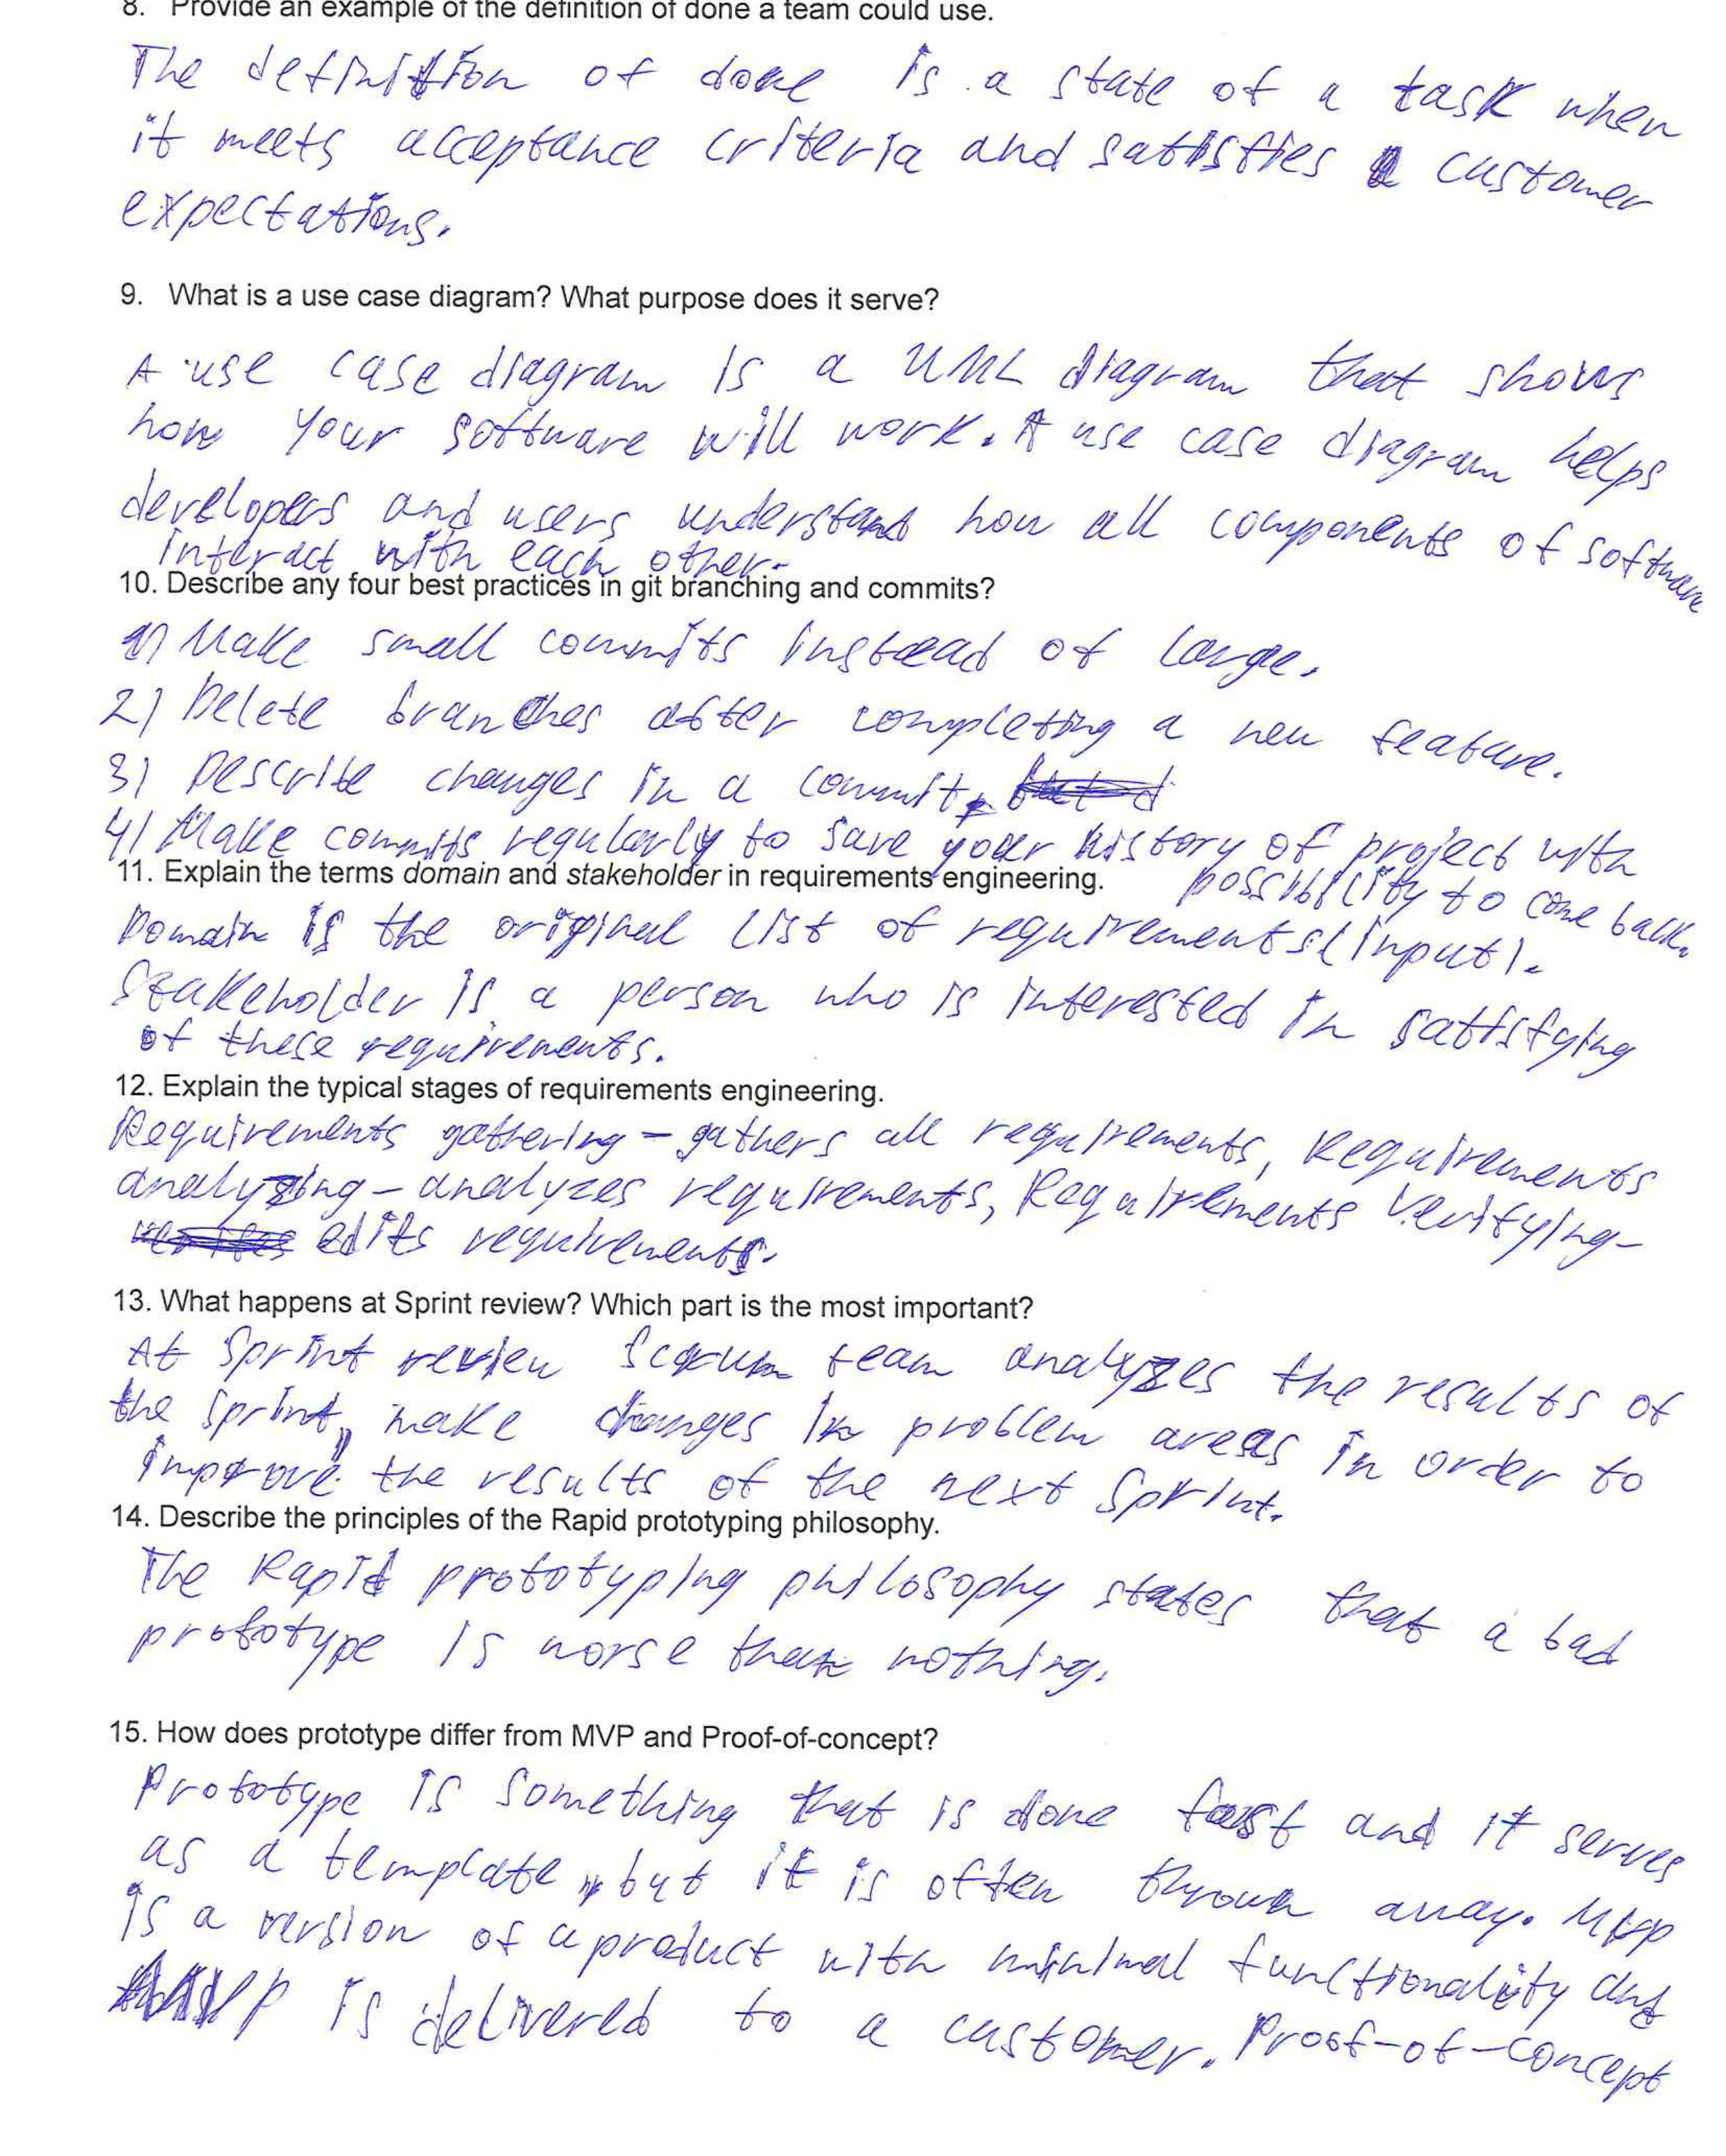 8. Provide an example of the definition of done a team could use.
The definition of done is a state of a task when
it meets acceptance criteria and satisfies customer
expectations.
9. What is a use case diagram? What purpose does it serve?
A use case diagram is a UML diagram that shows
how your software will work. A use case diagram helps
developers and users understand how all components of software
interact with each other.
10. Describe any four best practices in git branching and commits?
1) Make small commits instead of large.
2) Delete branches after completing a new feature.
3) Describe changes in a commit.
4) Make commits regularly to save your history of project with
possibility to come back.
11. Explain the terms domain and stakeholder in requirements engineering.
Domain is the original list of requirements (input).
Stakeholder is a person who is interested in satisfying
of these requirements.
12. Explain the typical stages of requirements engineering.
Requirements gathering – gathers all requirements, Requirements
analyzing – analyzes requirements, Requirements Verifying –
edits requirements.
13. What happens at Sprint review? Which part is the most important?
At Sprint review Scrum team analyzes the results of
the sprint, make changes in problem areas in order to
improve the results of the next Sprint.
14. Describe the principles of the Rapid prototyping philosophy.
The Rapid prototyping philosophy states that a bad
prototype is worse than nothing.
15. How does prototype differ from MVP and Proof-of-concept?
Prototype is something that is done fast and it serves
as a template, but it is often thrown away. MVP
is a version of a product with minimal functionality and
MVP is delivered to a customer. Proof-of-concept